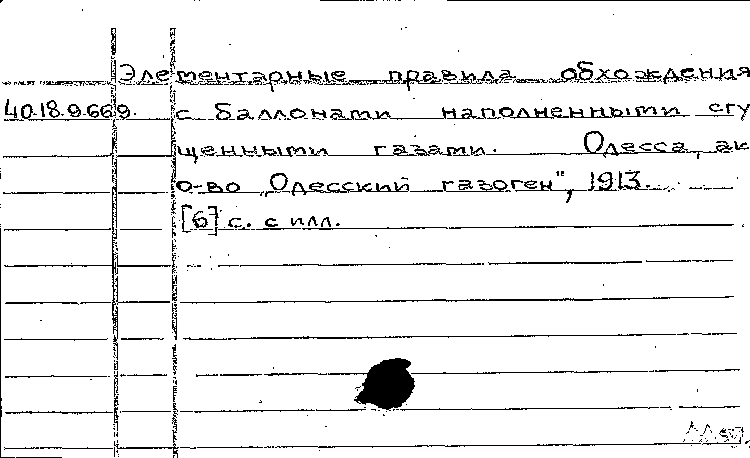 Элементарные правила обхождения
40.18.9.669. с баллонами наполненными сгу
щенными газами. Одесса, ак
о-во „Одесский газоген", 1913.
[6] с. с илл.